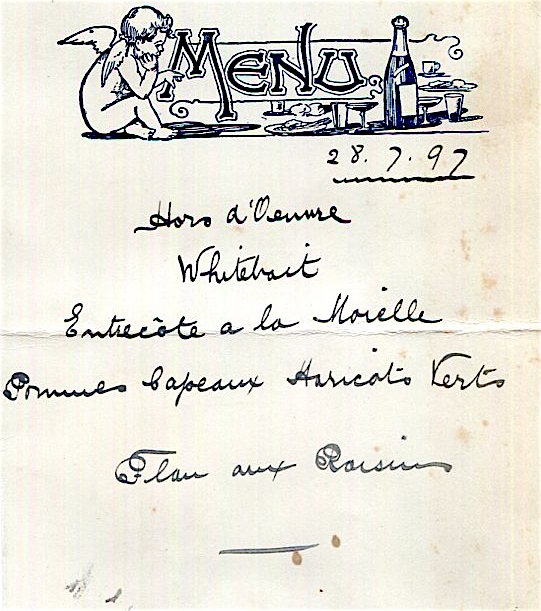 MENU
28.7.97
Hors d'Oeuvre
Whitebait
Entrecôte a la Moielle
Pommes Capeaux Haricots Verts
Flan aux Raisins